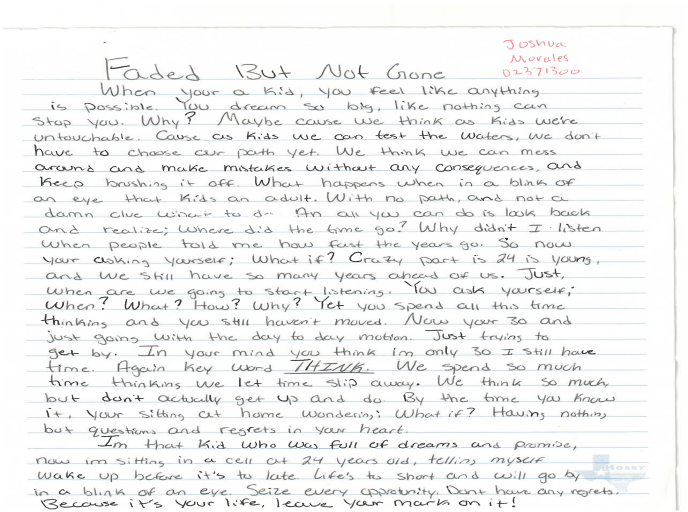 Joshua
Morales
02371300
Faded But Not Gone
When your a kid, you feel like anything
is possible. You dream so big, like nothing can
stop you. Why? Maybe cause we think as kids we're
untouchable. Cause as kids we can test the waters, we don't
have to choose our path yet. We think we can mess
around and make mistakes without any consequences, and
keep brushing it off. What happens when in a blink of
an eye that kids an adult. With no path, and not a
damn clue what to do. An all you can do is look back
and realize; where did the time go? Why didn't I listen
when people told me how fast the years go. So now
your asking yourself; What if? Crazy part is 24 is young,
and we still have so many years ahead of us. Just,
when are we going to start listening. You ask yourself;
When? What? How? Why? Yet you spend all this time
thinking and you still haven't moved. Now your 30 and
just going with the day to day motion. Just trying to
get by. In your mind you think im only 30 I still have
time. Again key word THINK. We spend so much
time thinking we let time slip away. We think so much,
but don't actually get up and do. By the time you know
it, your sitting at home wondering; What if? Having nothing
but questions and regrets in your heart.
Im that kid who was full of dreams and promise,
now im sitting in a cell at 24 years old, telling myself
wake up before it's to late. Life's to short and will go by
in a blink of an eye. Seize every opprotunity. Dont have any regrets.
Because it's your life, leave your mark on it!